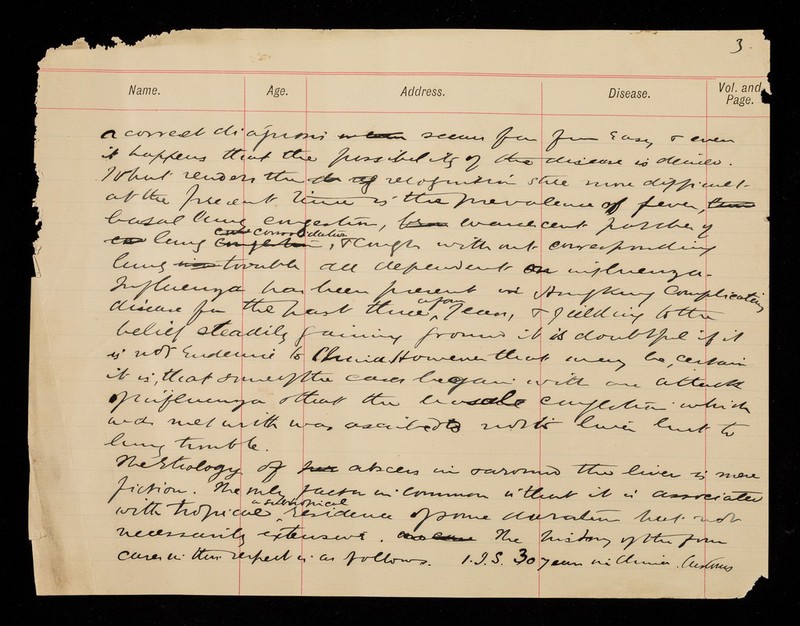 3.
Name. Age. Address. Disease. Vol. and Page.
a correct diagnosis seems far from easy & even
it happens that the possibility of the disease is denied.
What renders the recognition still more difficult
at the present time is the prevalence of fever,
basal lung congestion, evanescent patches of
lung consolidation, & cough without corresponding
lung trouble all dependent on influenza.
Influenza has been present in Hongkong complicating
disease for the past three or four years, & judging by the
belief steadily gaining ground it is doubtful if it
is not endemic to China. However that may be, certain
it is, that some of the cases began with an attack
of influenza & that the basal congestion which
was met with was ascribed to not to liver but to
lung trouble.
The Etiology of abscess in & around the liver is mere
fiction. The only factor in common is that it is associated
with tropical or subtropical residence of some duration but not
necessarily extensive. The history of the four
cases in this respect is as follows. 1. J.S. 30 years in China. Customs